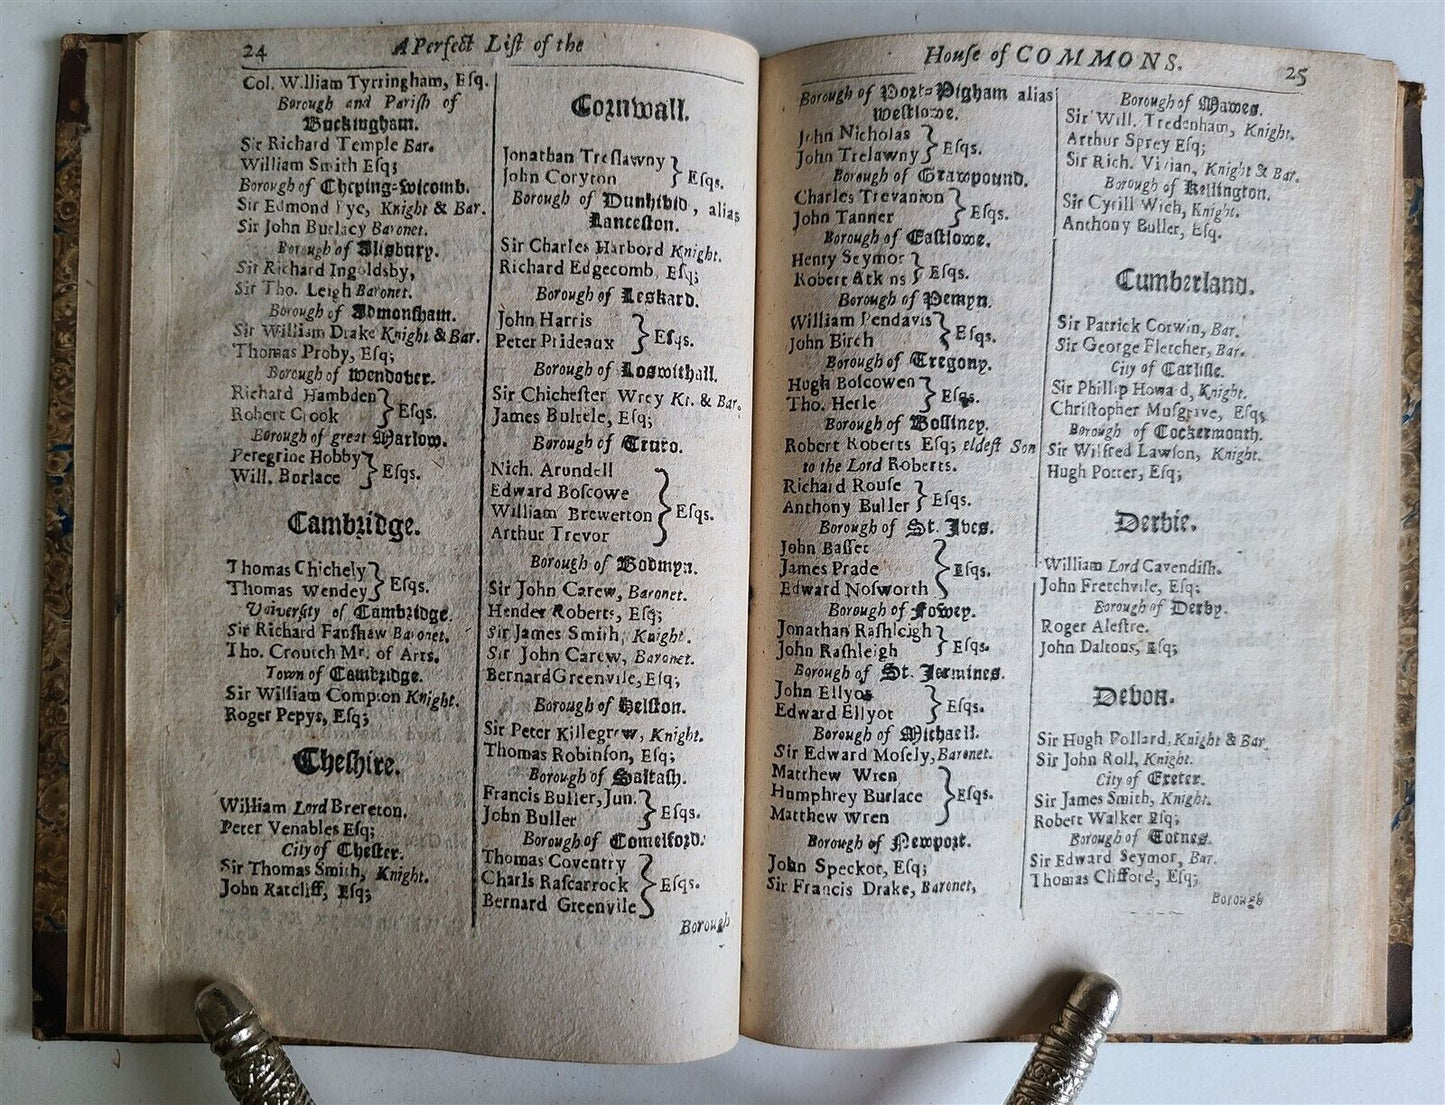 24
A Perfect List of the
Col. William Tyrringham, Esq.
Borough and Parish of
Buckingham.
Sir Richard Temple Bar.
William Smith Esq;
Borough of Cheping-wicomb.
Sir Edmond Pye, Knight & Bar.
Sir John Burlacy Baronet.
Borough of Alisbury.
Sir Richard Ingoldsby,
Sir Tho. Leigh Baronet.
Borough of Admonsham.
Sir William Drake Knight & Bar.
Thomas Proby, Esq;
Borough of wendover.
Richard Hambden
Robert Crook } Esqs.
Borough of great Marlow.
Peregrine Hobby
Will. Borlace } Esqs.
Cambridge.
Thomas Chichely
Thomas Wendey } Esqs.
University of Cambridge.
Sir Richard Fanshaw Baronet.
Tho. Croutch Mr. of Arts.
Town of Cambridge.
Sir William Compton Knight.
Roger Pepys, Esq;
Cheshire.
William Lord Brereton.
Peter Venables Esq;
City of Chester.
Sir Thomas Smith, Knight.
John Ratcliff, Esq;
Cornwall.
Jonathan Treslawny
John Coryton } Esqs.
Borough of Dunhivid, alias
Lanceston.
Sir Charles Harbord Knight.
Richard Edgecomb, Esq;
Borough of Leskard.
John Harris
Peter Prideaux } Esqs.
Borough of Loswithall.
Sir Chichester Wrey Kt. & Bar.
James Bultele, Esq;
Borough of Truro.
Nich. Arundell
Edward Boscowe
William Brewerton } Esqs.
Arthur Trevor
Borough of Bodmyn.
Sir John Carew, Baronet.
Hender Roberts, Esq;
Sir James Smith, Knight.
Sir John Carew, Baronet.
Bernard Greenvile, Esq;
Borough of Helston.
Sir Peter Killegrew, Knight.
Thomas Robinson, Esq;
Borough of Saltash.
Francis Buller, Jun.
John Buller } Esqs.
Borough of Comelford.
Thomas Coventry
Charls Rascarrock } Esqs.
Bernard Greenvile
Borough
House of COMMONS.
25
Borough of Port-Pigham alias
Westlowe.
John Nicholas
John Trelawny } Esqs.
Borough of Grampound.
Charles Trevanion
John Tanner } Esqs.
Borough of Eastlowe.
Henry Seymor
Robert Atkins } Esqs.
Borough of Pemyn.
William Pendavis
John Birch } Esqs.
Borough of Tregony.
Hugh Boscowen
Tho. Herle } Esqs.
Borough of Bossiney.
Robert Roberts Esq; eldest Son
to the Lord Roberts.
Richard Rouse
Anthony Buller } Esqs.
Borough of St. Ives.
John Basset
James Prade } Esqs.
Edward Nosworth
Borough of Fowey.
Jonathan Rashleigh
John Rashleigh } Esqs.
Borough of St. Jermines.
John Ellyot
Edward Ellyot } Esqs.
Borough of Michaell.
Sir Edward Mosely, Baronet.
Matthew Wren
Humphrey Burlace } Esqs.
Matthew Wren
Borough of Newport.
John Speckot, Esq;
Sir Francis Drake, Baronet,
Borough of Mawes.
Sir Will. Tredenham, Knight.
Arthur Sprey Esq;
Sir Rich. Vivian, Knight & Bar.
Borough of Kellington.
Sir Cyrill Wich, Knight.
Anthony Buller, Esq.
Cumberland.
Sir Patrick Corwin, Bar.
Sir George Fletcher, Bar.
City of Carlisle.
Sir Phillip Howard, Knight.
Christopher Musgrave, Esq;
Borough of Cockermouth.
Sir Wilfred Lawson, Knight.
Hugh Potter, Esq;
Derbie.
William Lord Cavendish.
John Fretchvile, Esq;
Borough of Derby.
Roger Alestre.
John Daltons, Esq;
Devon.
Sir Hugh Pollard, Knight & Bar.
Sir John Roll, Knight.
City of Exeter.
Sir James Smith, Knight.
Robert Walker Esq;
Borough of Totnes.
Sir Edward Seymor, Bar.
Thomas Clifford, Esq;
Borough